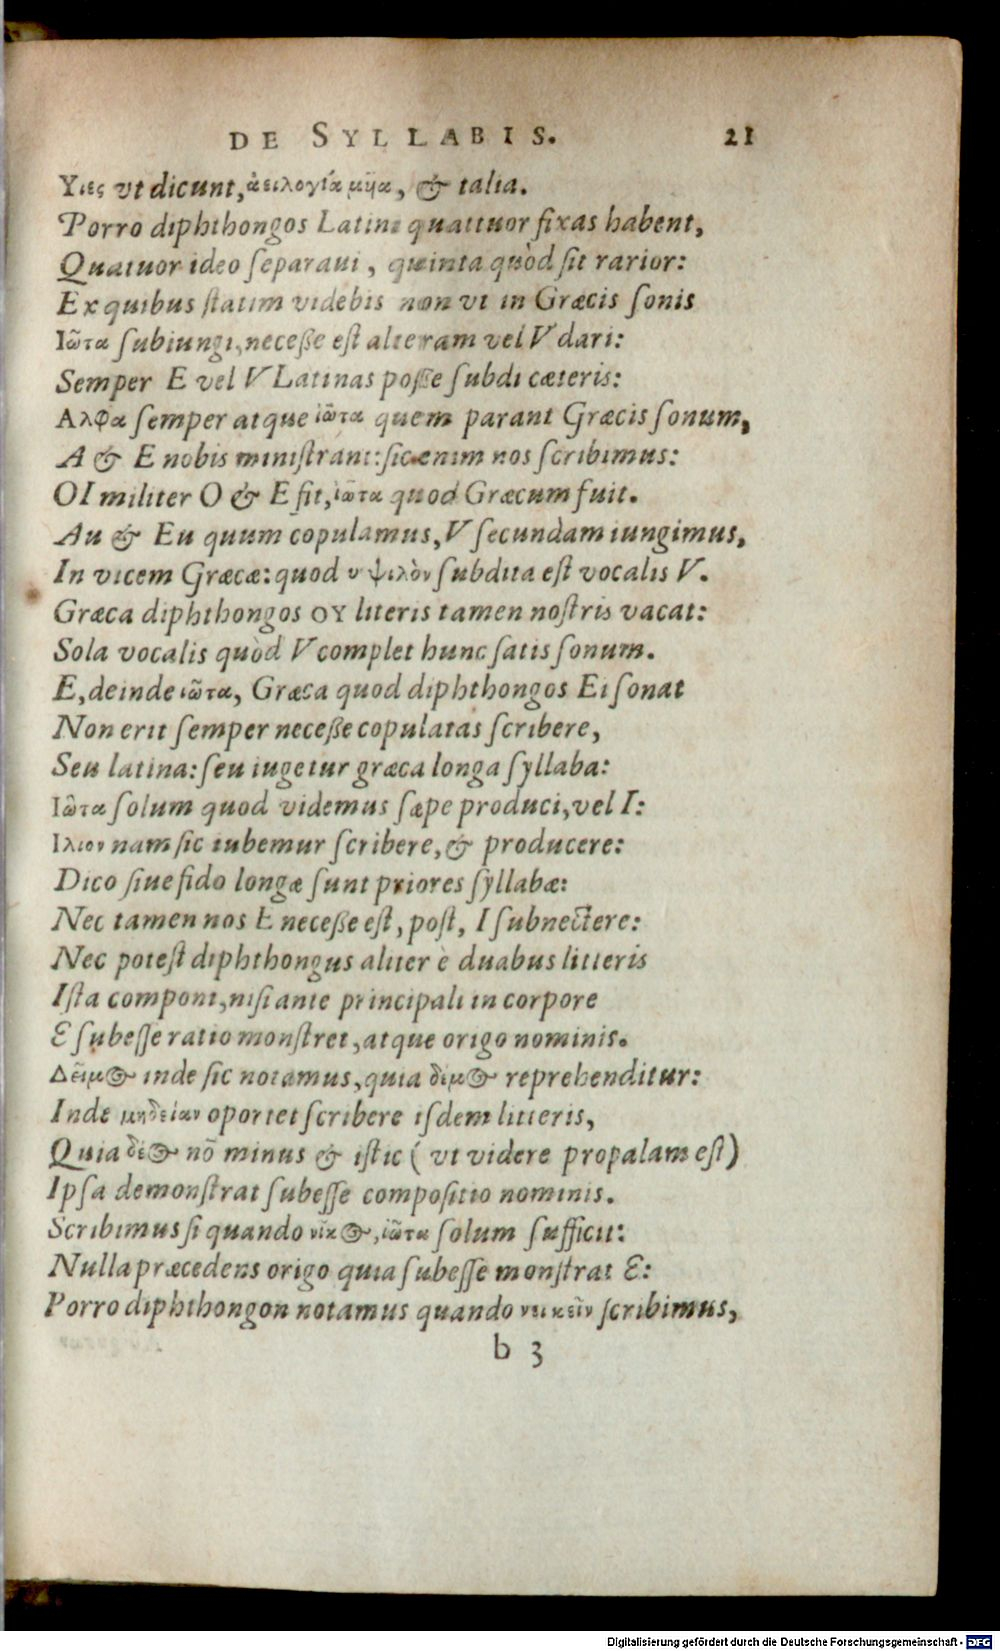 DE SYLLABIS. 21
Υιες vt dicunt, ἀειλογία μῆα, & talia.
Porro diphthongos Latini quattuor fixas habent,
Quatuor ideo separaui, quinta quòd sit rarior:
Ex quibus statim videbis non vt in Græcis sonis
Ιῶτα subiungi, necesse est alteram vel V dari:
Semper E vel V Latinas posse subdi cæteris:
Αλφα semper atque ἰῶτα quem parant Græcis sonum,
A & E nobis ministrant: sic enim nos scribimus:
OI militer O & E fit, ἰῶτα quod Græcum fuit.
Au & Eu quum copulamus, V secundam iungimus,
In vicem Græcæ: quod υ ψιλὸν subdita est vocalis V.
Græca diphthongos ΟΥ literis tamen nostris vacat:
Sola vocalis quòd V complet hunc satis sonum.
E, deinde ιῶτα, Græca quod diphthongos Ei sonat
Non erit semper necesse copulatas scribere,
Seu latina: seu iugetur græca longa syllaba:
Ιῶτα solum quod videmus sæpe produci, vel I:
Ιλιον nam sic iubemur scribere, & producere:
Dico siue fido longæ sunt priores syllabæ:
Nec tamen nos E necesse est, post, I subnectere:
Nec potest diphthongus aliter è duabus litteris
Ista componi, nisi ante principali in corpore
E subesse ratio monstret, atque origo nominis.
Δεῖμος inde sic notamus, quia δῖμος reprehenditur:
Inde μηδείαν oportet scribere isdem litteris,
Quia δέος nō minus & istic (vt videre propalam est)
Ipsa demonstrat subesse compositio nominis.
Scribimus si quando νῖκος, ἰῶτα solum sufficit:
Nulla præcedens origo quia subesse monstrat E:
Porro diphthongon notamus quando νεικεῖν scribimus,
b 3
Digitalisierung gefördert durch die Deutsche Forschungsgemeinschaft - DFG